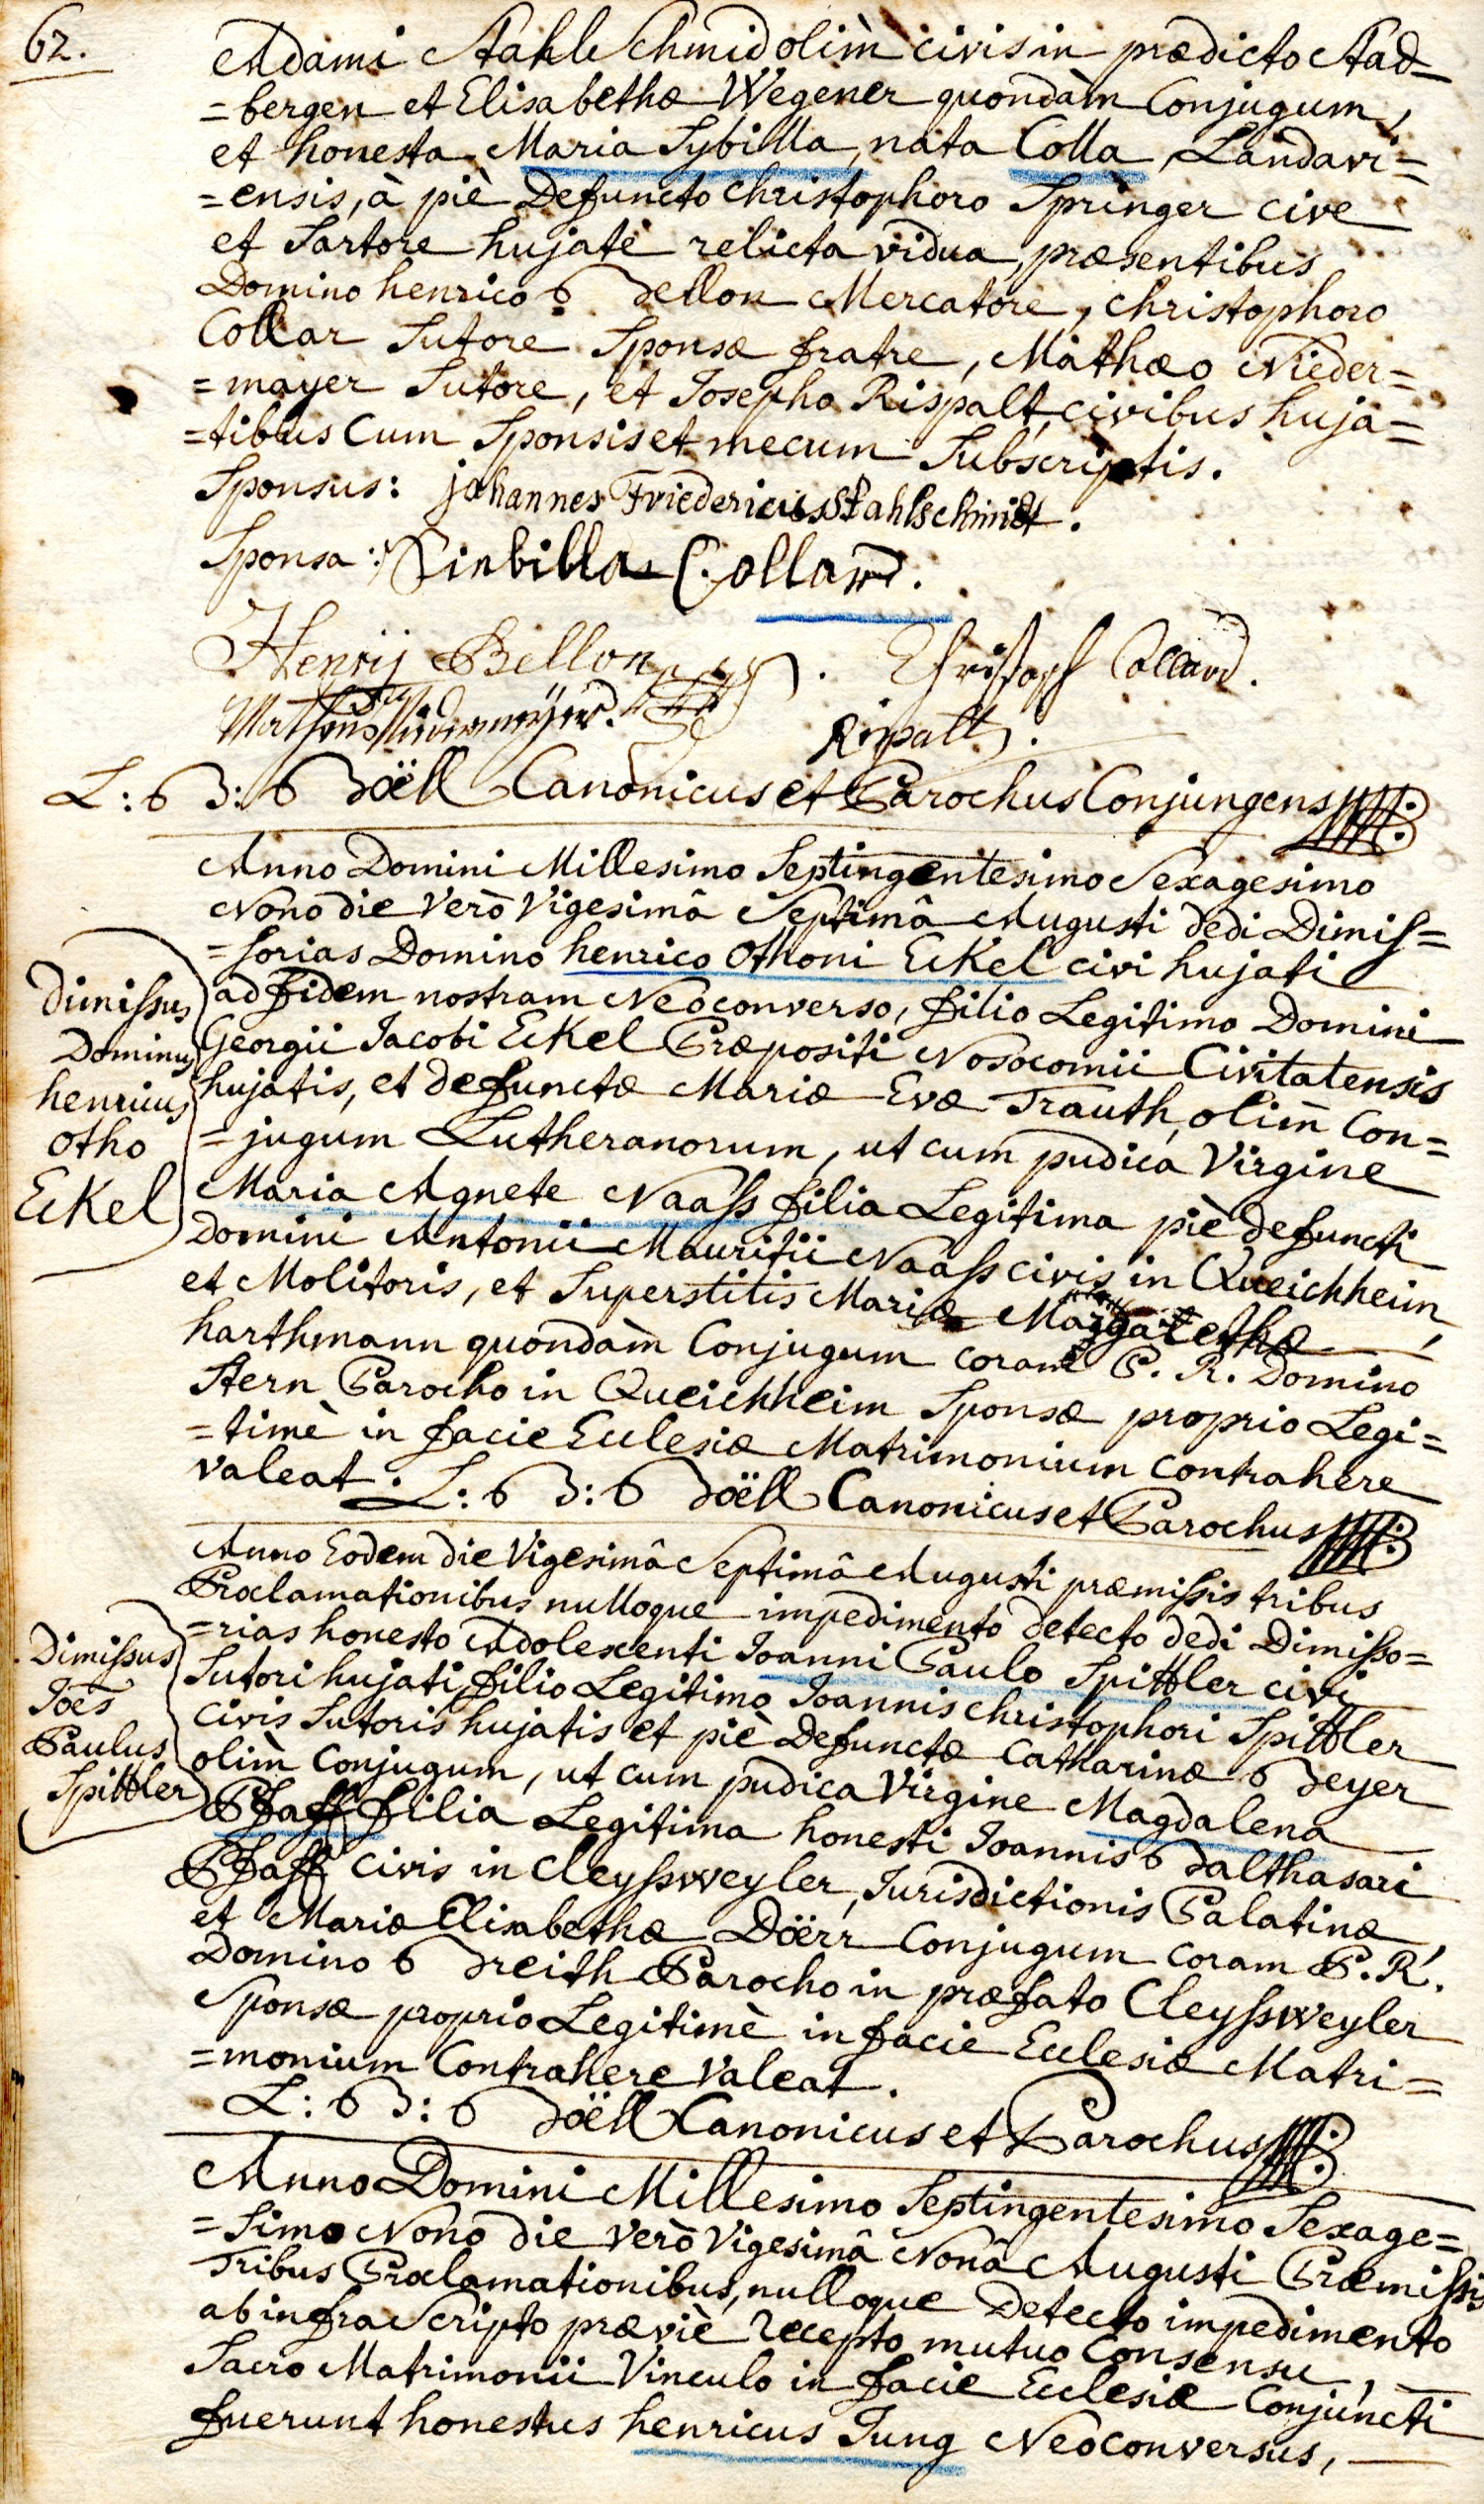 62.
Adami Stahlschmid olim̀ civis in prædicto Stad-
=bergen et Elisabethæ Wegener quondam̀ Conjugum,
et honesta Maria Sybilla, nata Colla, Landavi=
=ensis, à piè Defuncto christophoro Springer cive
et Sartore hujate relicta vidua, præsentibus
Domino henrico Bellon Mercatore, christophoro
Collar Sutore Sponsæ fratre, Mathæo Nieder=
=mayer Sutore, et Josepho Rispalt, civibus huja=
=tibus Cum Sponsis et mecum Subscriptis.
Sponsus: johannes Friedericus Stahlschmidt.
Sponsa: Sinbilla Collard.
Henrij Bellon. Christoph Collard.
Matheus Nidermeÿer. Rispalt.
L: B: Boëll Canonicus et Parochus Conjungens
Anno Domini Millesimo Septingentesimo Sexagesimo
Nono die Verò Vigesimâ Septimâ Augusti dedi Dimiss=
=sorias Domino henrico Othoni Eckel civi hujati
ad fidem nostram Neoconverso, filio Legitimo Domini
Georgii Jacobi Eckel Præpositi Nosocomii Civitatensis
hujatis, et defunctæ Mariæ Evæ Trauth, olim̀ Con=
=jugum Lutheranorum, ut cum pudica Virgine
Maria Agnete Naass filia Legitima piè defuncti
Domini Antonii Mauritii Naass civis in Queichheim,
et Molitoris, et Superstitis Mariæ Margarethæ
harthmann quondam̀ Conjugum coram P. R. Domino
Stern Parocho in Queichheim Sponsæ proprio Legi=
=timè in facie Ecclesiæ Matrimonium contrahere
valeat. L: B: Boëll Canonicus et Parochus
dimissus
Dominus
henricus
Otho
Eckel
Anno Eodem die Vigesimâ Septimâ Augusti præmissis tribus
Proclamationibus nulloque impedimento detecto dedi Dimisso=
=rias honesto Adolescenti Joanni Paulo Spittler civi
Sutori hujati filio Legitimo Joannis christophori Spittler
Civis Sutoris hujatis et piè Defunctæ Catharinæ Beyer
olim̀ Conjugum, ut cum pudica Virgine Magdalena
Pfaff filia Legitima honesti Joannis Balthasari
Pfaff Civis in Cleyssweyler, Jurisdictionis Palatinæ,
et Mariæ Elisabethæ Döerr Conjugum coram P. R.
Domino Breith Parocho in præfato Cleyssweyler
Sponsæ proprio Legitimè in facie Ecclesiæ Matri=
=monium Contrahere Valeat.
L: B: Boëll Canonicus et Parochus
Dimissus
Joes
Paulus
Spittler
Anno Domini Millesimo Septingentesimo Sexage=
=simo Nono die verò Vigesimâ Nonâ Augusti Præmissis
Tribus Proclamationibus, nulloque Detecto impedimento
ab infra Scripto præviè recepto mutuo Consensu,
Sacro Matrimonii Vinculo in facie Ecclesiæ Conjuncti
fuerunt honestus henricus Jung Neoconversus,